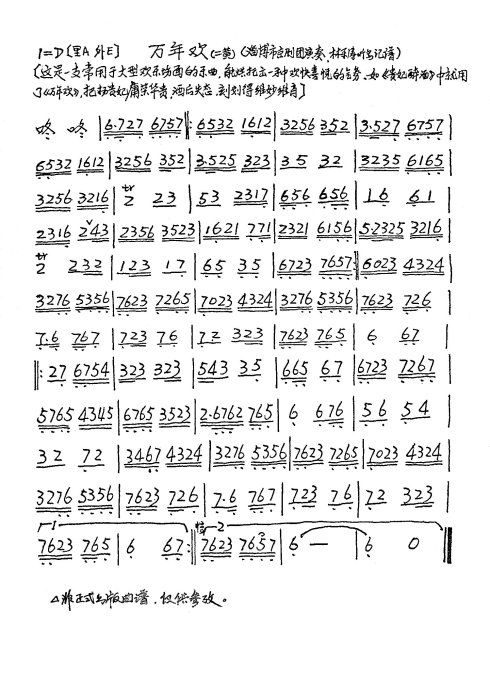 1=D〔里A 外E〕 万年欢 (二黄) (淄博市京剧团演奏, 记谱)
〔这是一支常用于大型欢乐场面的乐曲, 能烘托出一种欢快喜悦的气氛, 如《贵妃醉酒》中就用
了《万年欢》, 把杨贵妃雍荣华贵, 酒后失态, 刻划得维妙维肖〕
咚 咚 | 6·727 6757 |: 6532 1612 | 3256 352 | 3·527 6757 |
6532 1612 | 3256 352 | 3·525 323 | 35 32 | 3235 6165 |
3256 3216 | 2 23 | 53 2317 | 656 656 | 16 61 |
2316 243 | 2356 3523 | 1621 771 | 2321 6156 | 5·2325 3216 |
2 232 | 123 17 | 65 35 | 6723 7657 :| 6023 4324 |
3276 5356 | 7623 7265 | 7023 4324 | 3276 5356 | 7623 726 |
7·6 767 | 723 76 | 72 323 | 7623 765 | 6 67 |
|: 27 6754 | 323 323 | 543 35 | 665 67 | 6723 7267 |
5765 4345 | 6765 3523 | 2·6762 765 | 6 676 | 56 54 |
32 72 | 3467 4324 | 3276 5356 | 7623 7265 | 7023 4324 |
3276 5356 | 7623 726 | 7·6 767 | 723 76 | 72 323 |
1 2
7623 765 | 6 67 :| 7623 7657 | 6 — | 6 0 ‖
△非正式出版曲谱, 仅供参改。